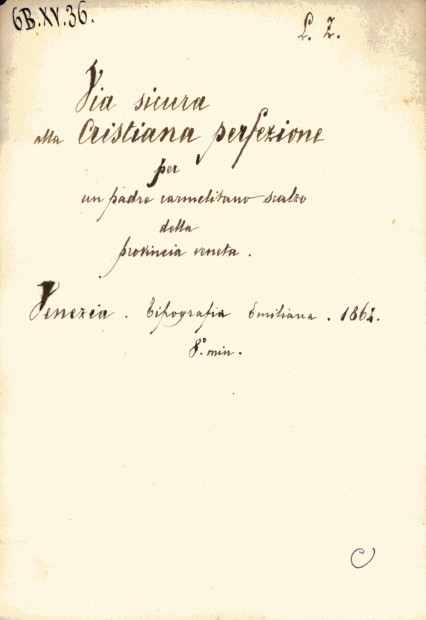 6B.XV.36.
L. Z.
Via sicura
alla Cristiana perfezione
per
un padre carmelitano scalzo
della
provincia veneta.
Venezia. Tipografia Emiliana. 1862.
8.° min.
C